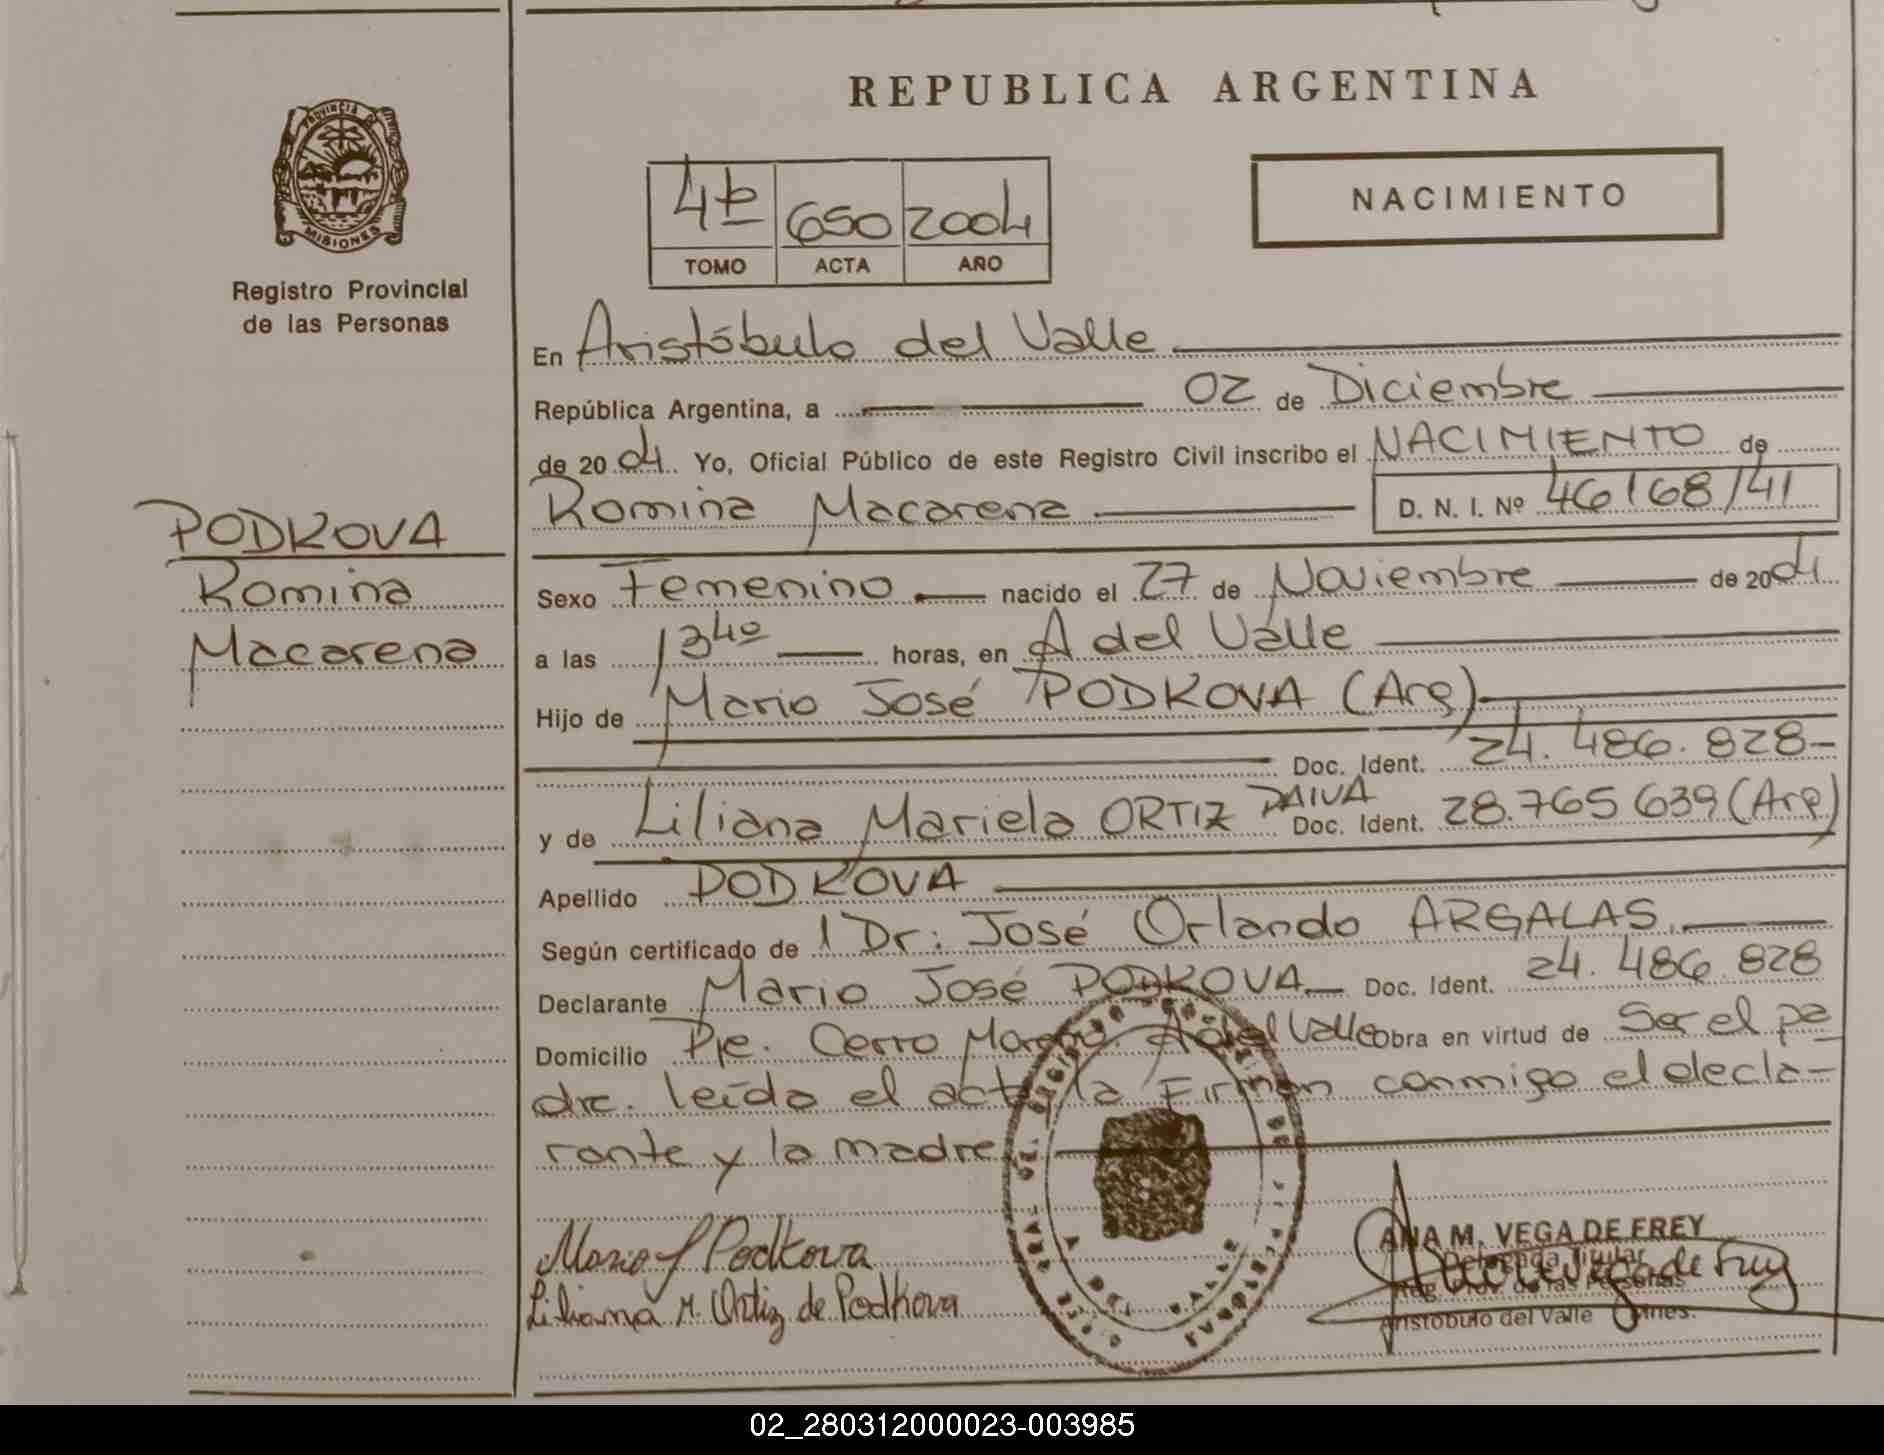 PROVINCIA DE
MISIONES
Registro Provincial
de las Personas
PODKOVA
Romina
Macarena
REPUBLICA ARGENTINA
4º 650 2004
TOMO ACTA AÑO
NACIMIENTO
En Aristóbulo del Valle
República Argentina, a 02 de Diciembre
de 2004. Yo, Oficial Público de este Registro Civil inscribo el NACIMIENTO de
Romina Macarena D. N. I. Nº
Sexo Femenino nacido el 27 de Noviembre de 2004
a las 13 40 horas, en A del Valle
Hijo de Mario José PODKOVA (Arg)
Doc. Ident. 24.486.828-
y de Liliana Mariela ORTIZ PAIVA Doc. Ident. 28.765639 (Arg)
Apellido PODKOVA
Según certificado de Dr: José Orlando ARGALAS.
Declarante Mario José PODKOVA Doc. Ident. 24.486.828
Domicilio Pje. Cerro Moreno A del Valle Obra en virtud de Ser el pa
dre. leída el acta la Firman conmigo el decla-
rante y la madre
Mario J Podkova
Liliana M. Ortiz de Podkova
ANA M. VEGA DE FREY
Delegada Titular
Reg. Prov. de las Personas
Aristóbulo del Valle Mnes.
02_280312000023-003985